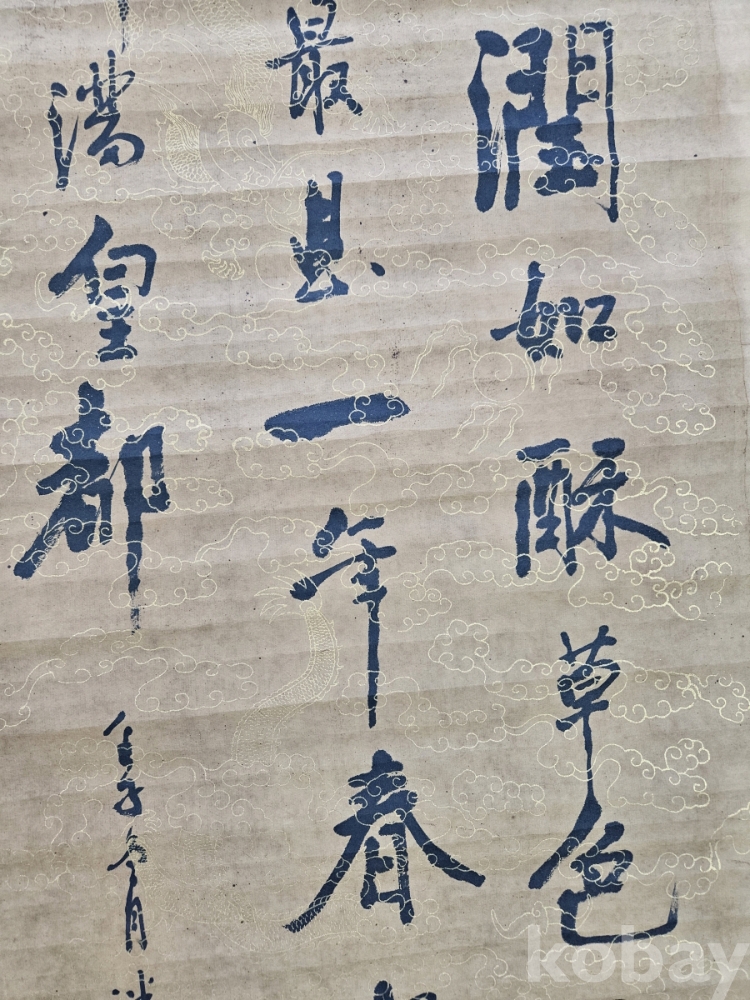 潤如酥草色
最是一年春
滿皇都
壬子冬月
kobay